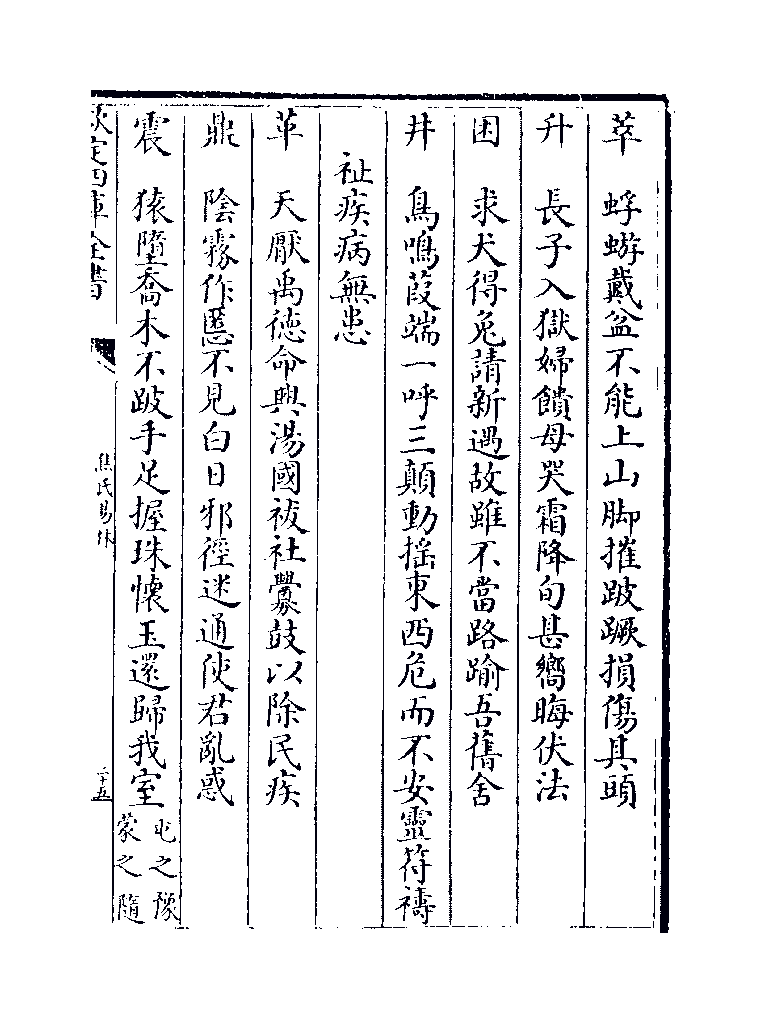 萃　蜉蝣戴盆不能上山脚摧跛蹶損傷其頭
升　長子入獄婦饋母哭霜降旬甚嚮晦伏法
困　求犬得兔請新遇故雖不當路踰吾舊舍
井　鳥鳴葭端一呼三顛動搖東西危而不安靈符禱
祉疾病無患
革　天厭禹徳命興湯國祓社釁鼓以除民疾
鼎　陰霧作慝不見白日邪徑迷通使君亂惑
震　猿墮喬木不跛手足握珠懷玉還歸我室屯之豫
蒙之隨
欽定四庫全書
焦氏易林
二十五